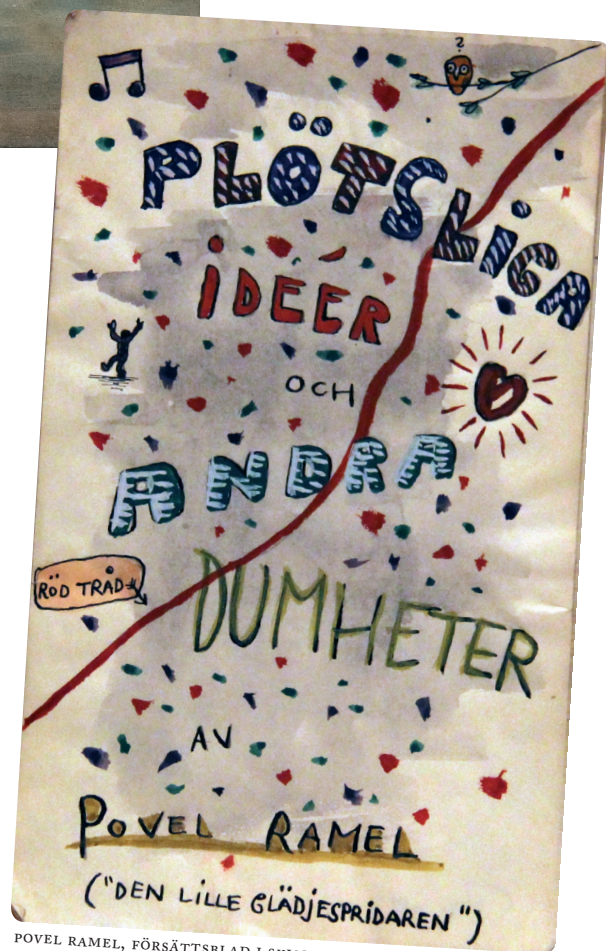 ?
PLÖTSLIGA
IDÉER
OCH
ANDRA
RÖD TRÅD
DUMHETER
AV
POVEL RAMEL
("DEN LILLE GLÄDJESPRIDAREN")
POVEL RAMEL, FÖRSÄTTSBLAD I